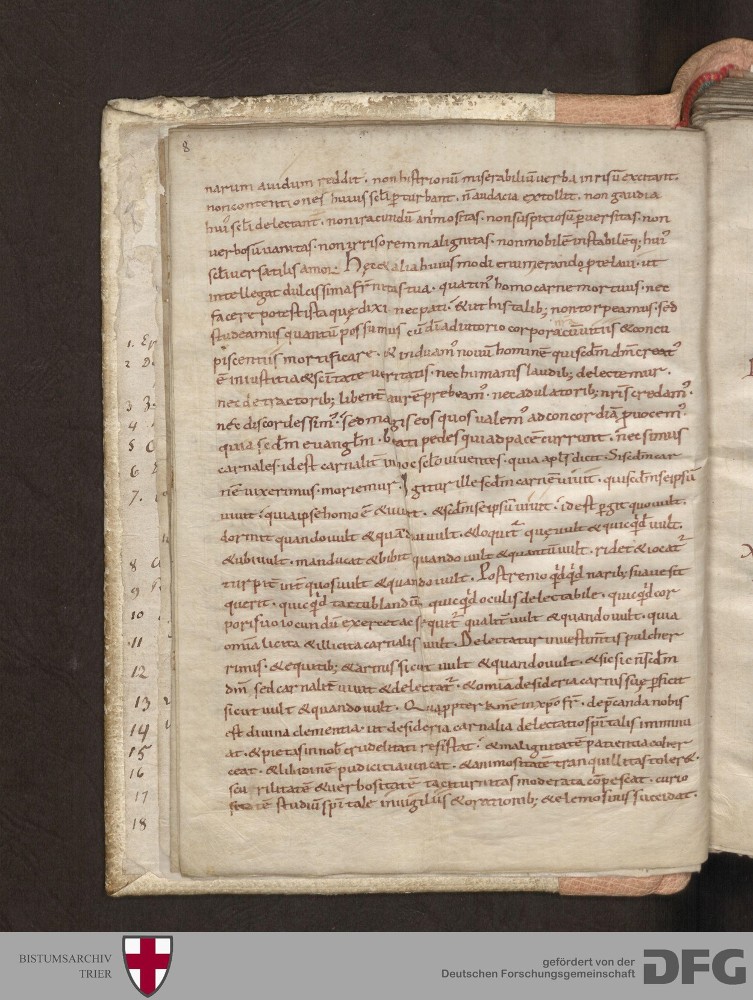 8
narum auidum reddit · non histrionū miserabiliū uerba in risū excitant ·
non contentiones huius scl̄i ꝑturbant · n̄ audacia extollit · non gaudia
hui᾽ scl̄i delectant · non iracundū animositas · non suspiciosū ꝑuersitas · non
uerbosū uanitas · non irrisorem malignitas · non mobilē instabilēq; hui᾽
scl̄i uersatilis amor · Hęc & alia huius modi enumerando ꝓtelaui · ut
intellegat dulcissima fr̄nitas tua · quatin᾽ homo carne mortuus · nec
facere potest ista quę dixi nec pati · & ut his talib; non torpeamus · sed
studeamus quantū possumus cū dī adiutorio corpora cū uitiis & concu
piscentiis mortificare · & induam᾽ nouū hominē qui scd̄m dm̄ creat᾽
ē in iustitia & sc̄itate ueritatis · nec humanis laudib; delectemur ·
nec detractorib; libent̄ aurē prebeam᾽ · nec adulatorib; nr̄is credam᾽ ·
nec discordes sim᾽ · sed magis eos quos ualem᾽ ad concordiā ꝓuocem᾽ ·
quia scd̄m euanglm̄ · beati pedes qui ad pacē currunt · nec simus
carnales · id est carnalit̄ in hoc sclō uiuentes · quia apls̄ dicit · Si scd̄m car
nē uixerimus · moriemur · Igitur ille scd̄m carnē uiuit · qui scd̄m se ipsū
uiuit · quia ipse homo ē & uiuit · & scd̄m se ipsū uiuit · id est ꝑgit quo uult ·
dormit quando uult & quādiu uult · & loquit᾽ quę uult & quicq̄d uult ·
& ubi uult · manducat & bibit quando uult & quantū uult · ridet & iocat᾽
turpit̄ int̄ quos uult & quando uult · Postremo q̄dq̄d narib; suaue sit
querit · quicq̄d tactu blandū · quicq̄d oculis delectabile · quicq̄d cor
poris sui iocundū exercet ac sequit᾽ qualit̄ uult & quando uult · quia
omīa licita & illicita carnalis uult · Delectatur uestimtīs pulcher
rimis · & equitib; & armis sicut uult & quando uult · & sic fi& n̄ scd̄m
dm̄ sed carnalit̄ uiuit & delectat᾽ · & omīa desideria carnis suę ꝑficit
sicut uult & quando uult · Quapropter kme in xp̄o fr̄ · dep̄canda nobis
est diuina clementia · ut desideria carnalia delectatio sp̄italis imminu
at · & pietas in nob̄ crudelitati resistat · & malignitatē patientia coher
ceat · & libidinē pudicitia uincat · & animositatē tranquillitas toler& ·
scurrilitatē & uerbositatē taciturnitas moderata cōpescat · curio
sitatē studiū sp̄itale in uigiliis & orationib; & elemosinis succidat ·
1.
2
3
4
5
6
7.
8
9
10
11
12
13
14
15
16
17
18
BISTUMSARCHIV
TRIER
gefördert von der
Deutschen Forschungsgemeinschaft
DFG